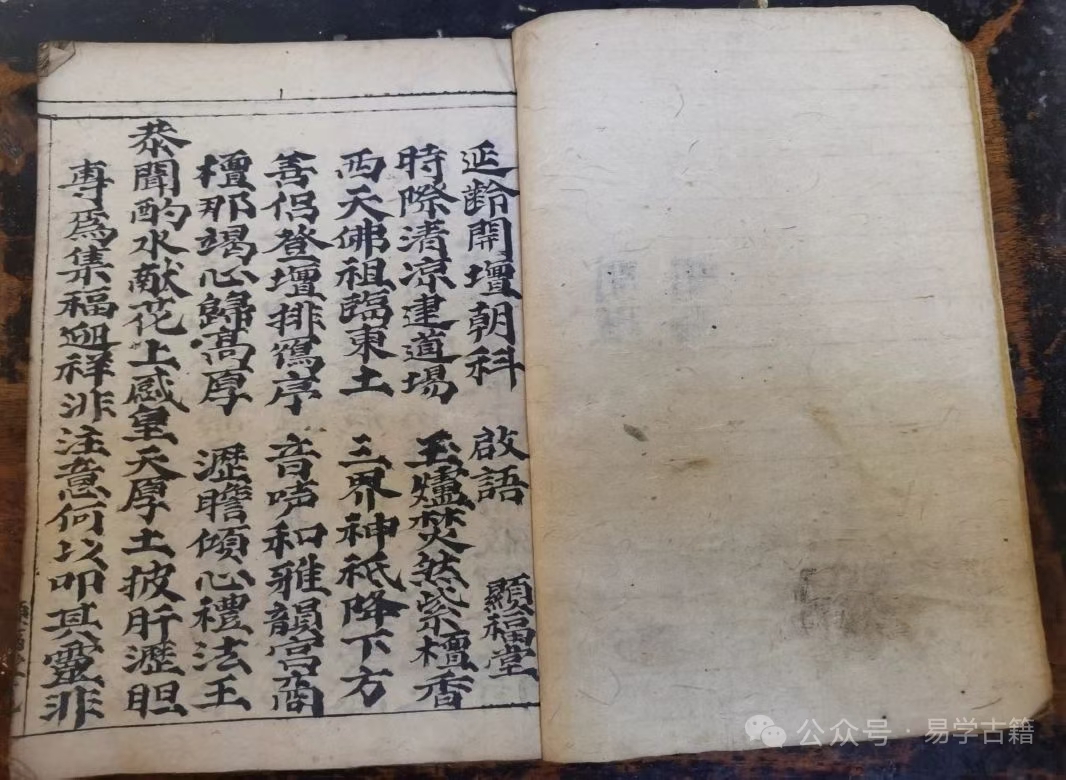 延齡開壇朝科 啟語 顯福堂
時際清凉建道場 玉爐焚热紫檀香
西天佛祖臨東土 三界神祇降下方
善侣登壇排鴈序 音声和雅韻宫商
檀那竭心歸高厚 瀝瞻傾心禮法王
恭聞酌水献花上感皇天厚土披肝瀝胆
專為集福迎祥非注意何以叩其靈非
公众号·易学古籍